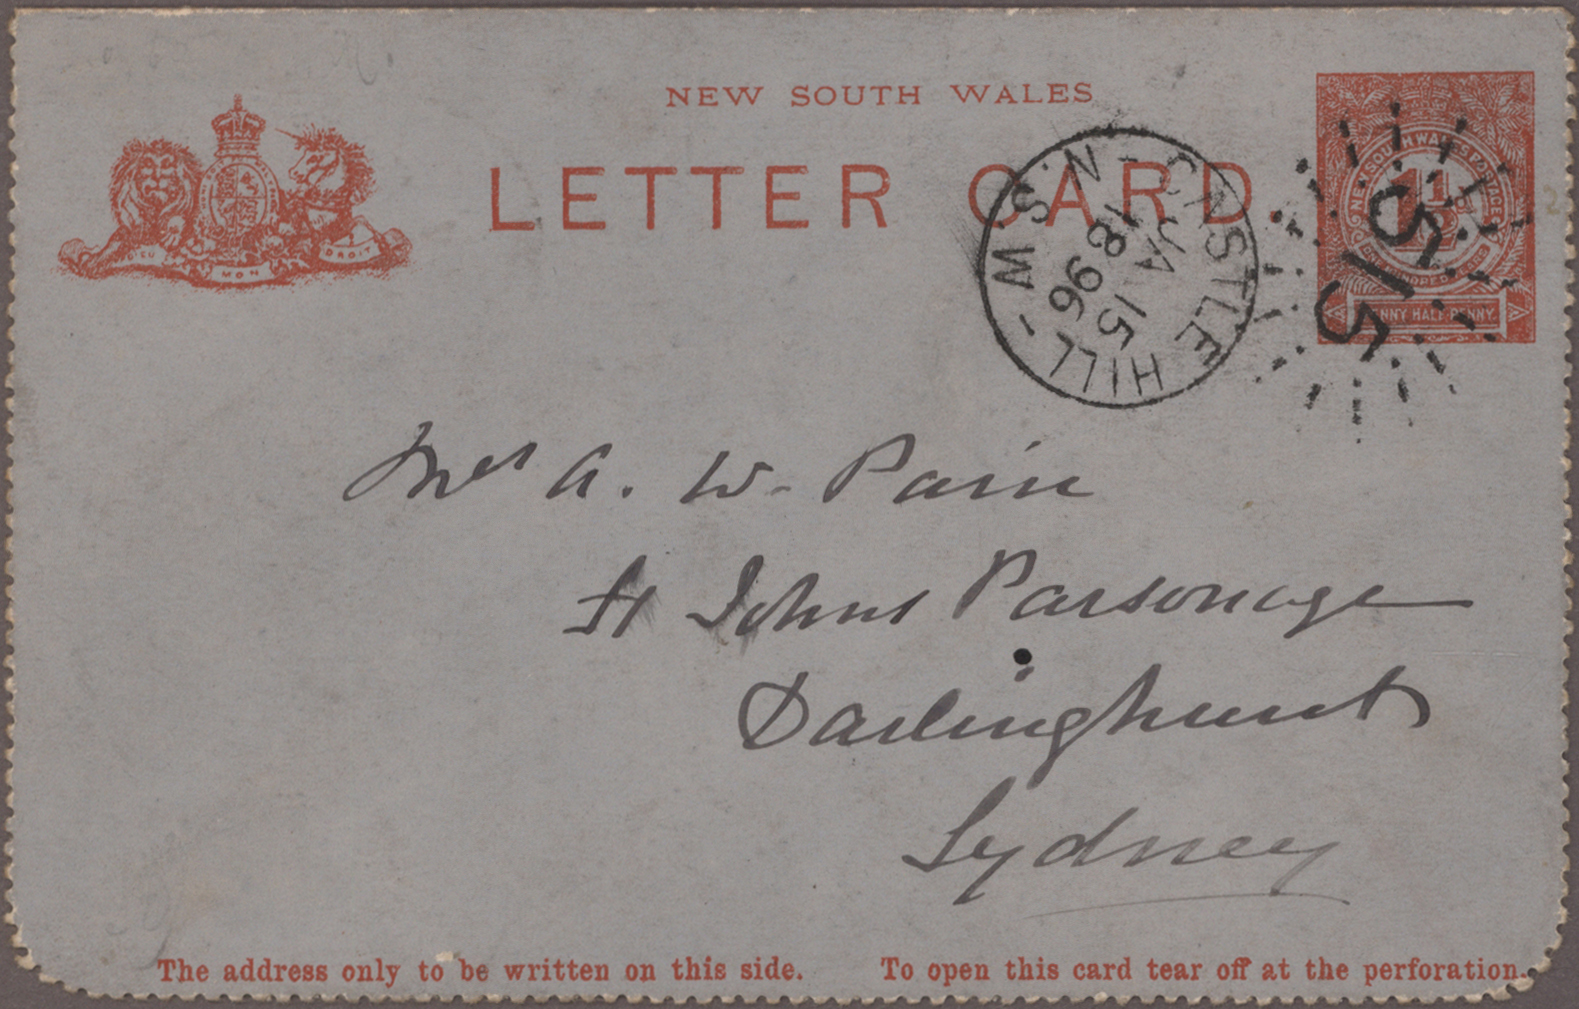 NEW SOUTH WALES
LETTER CARD.
DIEU ET MON DROIT
CASTLE HILL - N.S.W -
JA 15
1896
NEW SOUTH WALES POSTAGE
1½
PENNY HALF PENNY
515
Mrs A. W. Pain
St Johns Parsonage
Darlinghurst
Sydney
The address only to be written on this side.
To open this card tear off at the perforation.